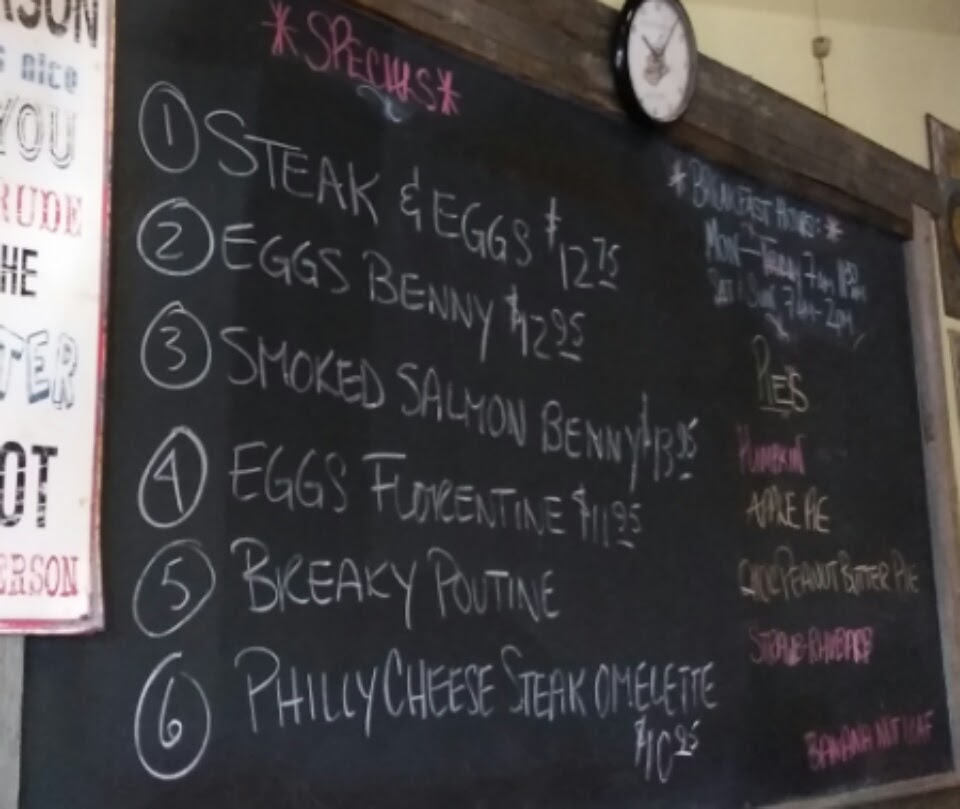 RSON
s nice
YOU
RUDE
HE
TER
OT
ERSON
*SPECIALS*
1 STEAK & EGGS $12.75
2 EGGS BENNY $12.95
3 SMOKED SALMON BENNY $13.95
4 EGGS FLORENTINE $11.95
5 BREAKY POUTINE
6 PHILLY CHEESE STEAK OMELETTE
$10.25
*BREAKFAST HOURS:*
MON- 7am
SAT & SUN 7am-2pm
PIE'S
PUMPKIN
APPLE PIE
CHOC PEANUT BUTTER PIE
STRAWB-RHUBARB
BANANA NUT LOAF